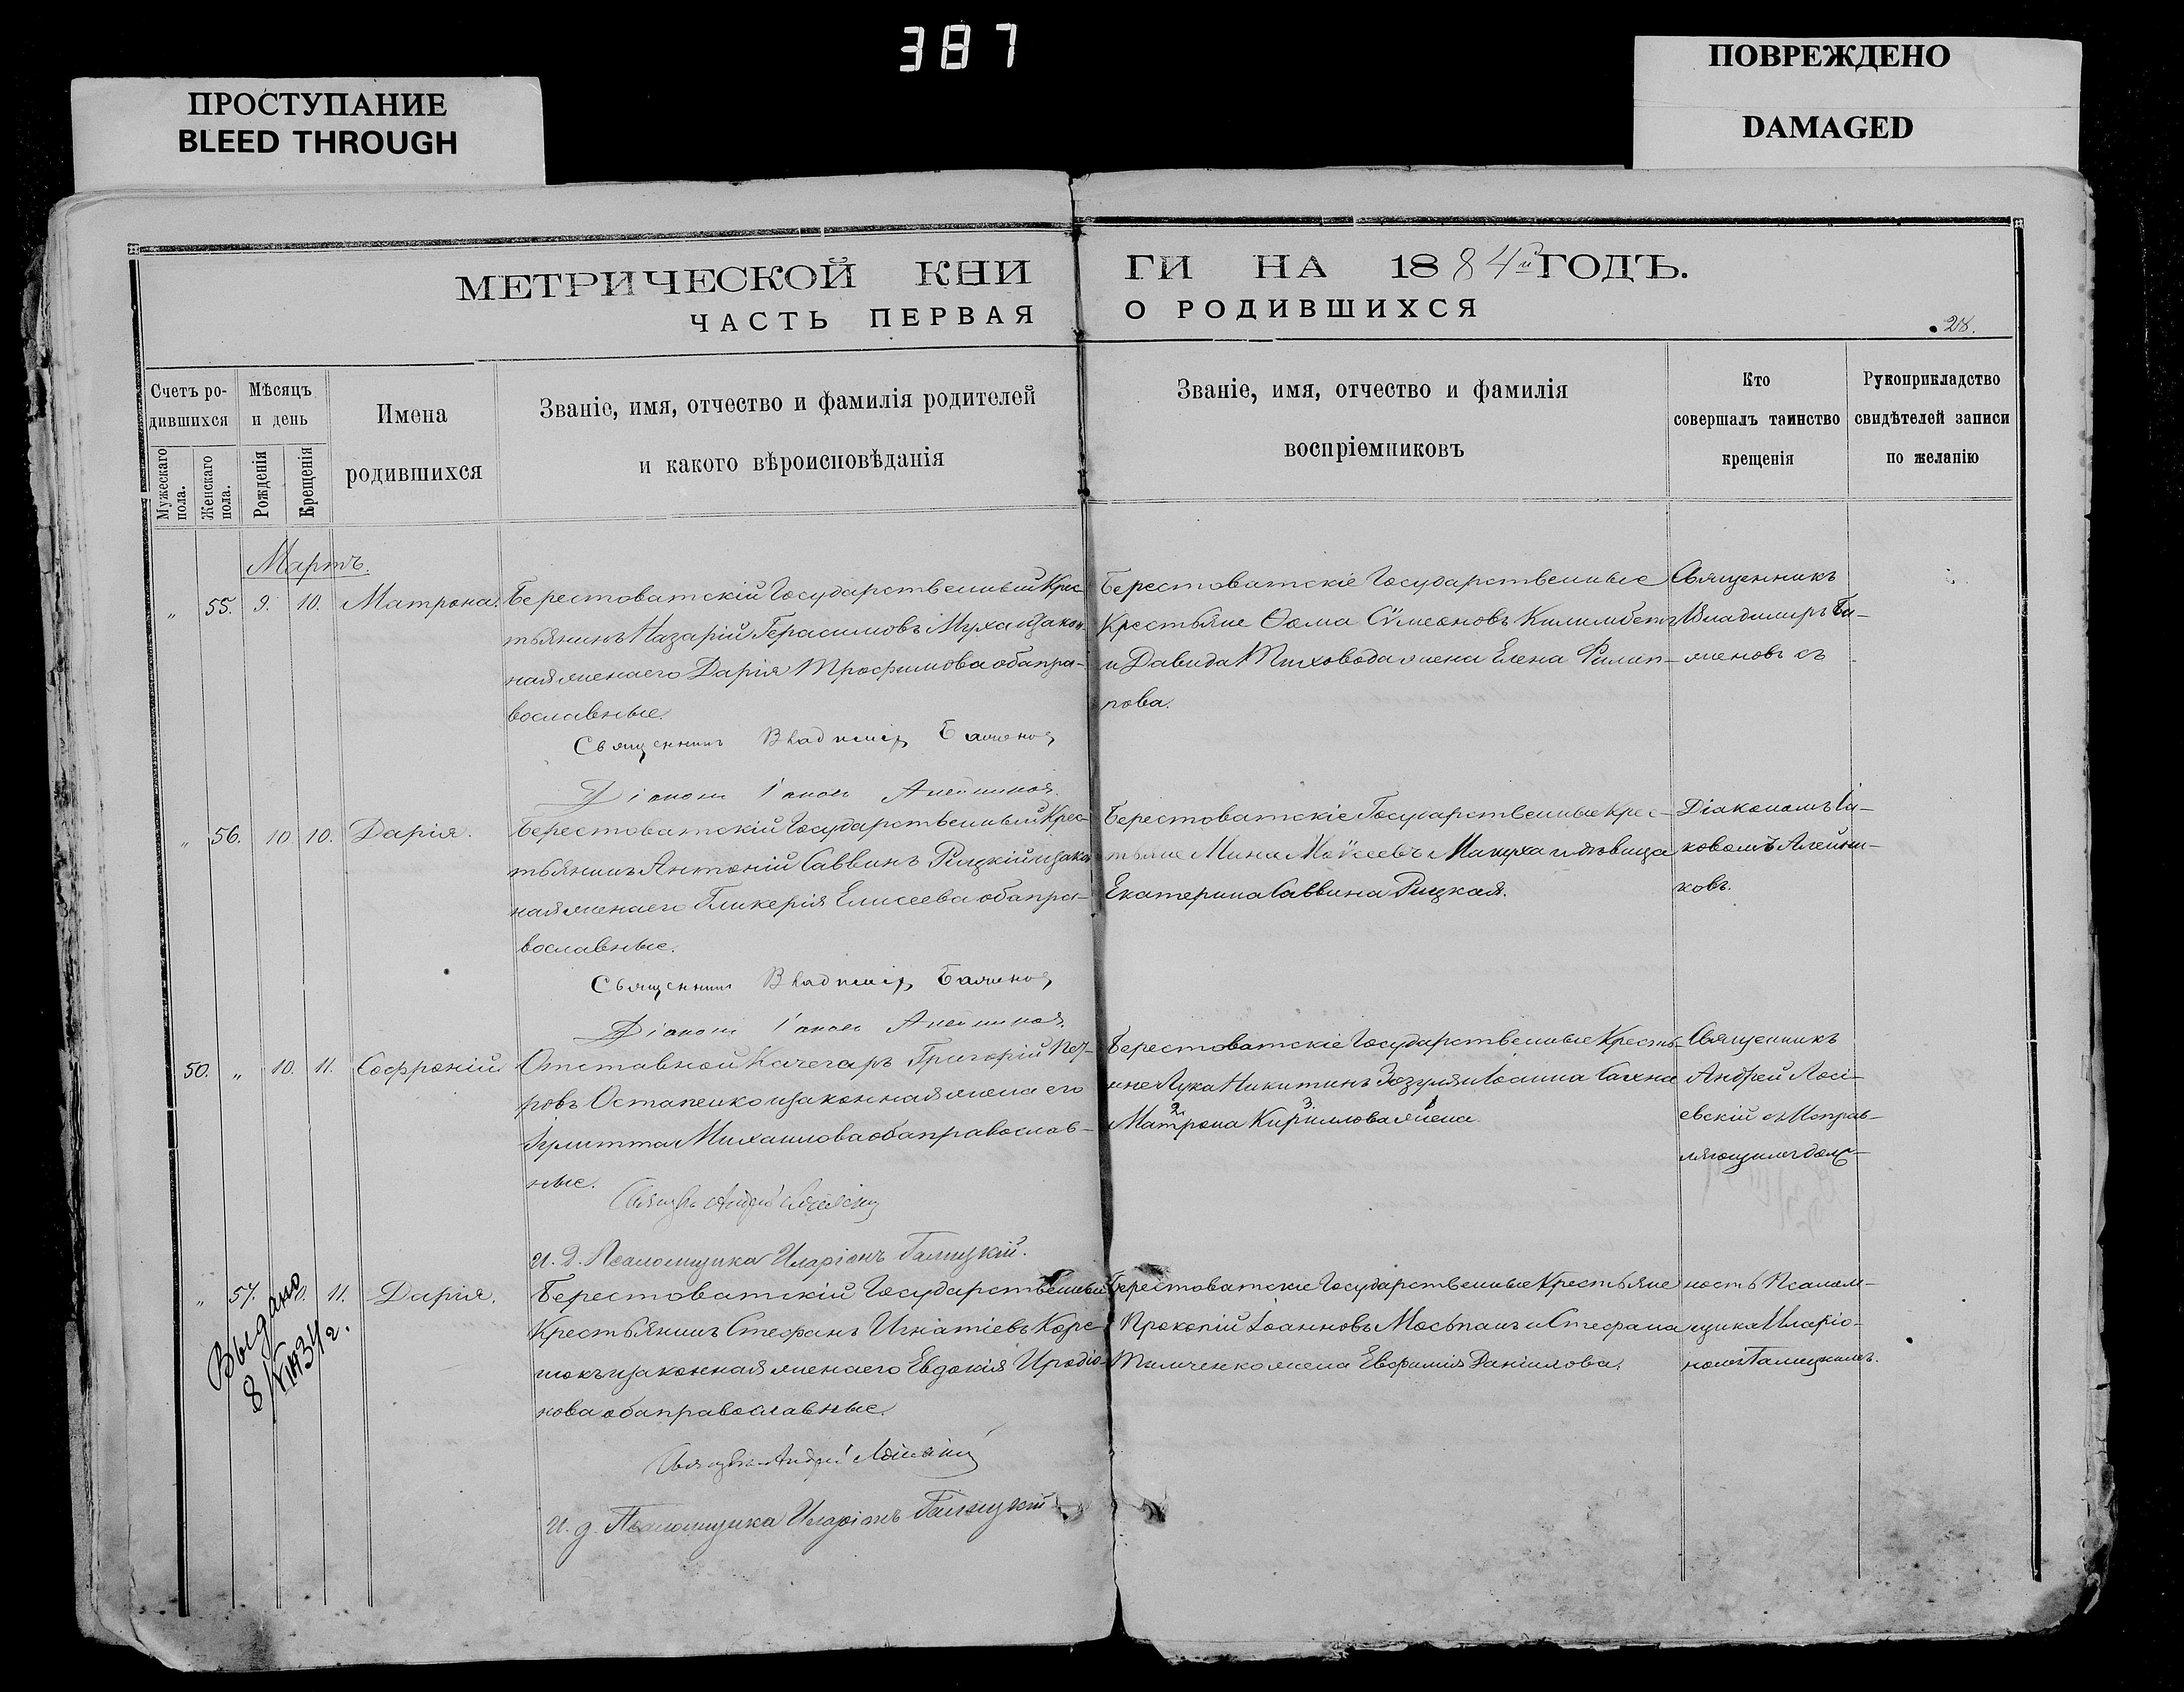 387
ПРОСТУПАНИЕ
BLEED THROUGH
ПОВРЕЖДЕНО
DAMAGED
МЕТРИЧЕСКОЙ КНИ
ГИ НА 1884й ГОДЪ.
ЧАСТЬ ПЕРВАЯ
О РОДИВШИХСЯ
28.
Счетъ ро-
дившихся
Мужескаго
пола.
Женскаго
пола.
Мѣсяцъ
и день
Рожденія
Крещенія
Имена
родившихся
Званіе, имя, отчество и фамилія родителей
и какого вѣроисповѣданія
Званіе, имя, отчество и фамилія
воспріемниковъ
Кто
совершалъ таинство
крещенія
Рукоприкладство
свидѣтелей записи
по желанію
Мартъ.
„ 55. 9. 10. Матрона.
Берестоватскій Государственный Крес-
тьянинъ Назарій Герасимовъ Муха и закон-
ная жена его Дарія Трофимова оба пра-
вославные.
Священникъ Владиміръ Баженов
Діаконъ Іаковъ Алейников
Берестоватскіе Государственные
Крестьяне Ѳома Сѵмеоновъ Килимбетъ
и Давида Тиховода жена Елена Филип-
пова.
Священникъ
Владимиръ Ба-
женовъ съ
„ 56. 10 10. Дарія.
Берестоватскій Государственный Крес-
тьянинъ Антоній Саввинъ Рицкій и закон
ная жена его Гликерія Елисеева оба пра-
вославные.
Священникъ Владиміръ Баженов
Діаконъ Іаковъ Алейников
Берестоватскіе Государственные Крес-
тьяне Мина Моѵсеевъ Макуха и дѣвица
Екатерина Саввина Рицкая.
Діакономъ Іа-
ковомъ Алейни-
ковъ.
50. „ 10. 11. Софроній
Отставной Качегаръ Григорій Пет-
ровъ Остапенко и законная жена его
Іулитта Михаилова оба православ-
ные.
Священъ Андрей
И. д. Псаломщика Иларіонъ Галицкій.
Берестоватскіе Государственные Кресть-
яне Лука Никитинъ Зозуля и Іоанна Сахна
2 3. 1
Матрона Кириллова жена
Священникъ
Андрей Лосі-
евскій съ Исправ-
ляющимъ долж-
„ 57. 11. Дарія.
Выдано
8/VIII 34 г.
Берестоватскій Государственный
Крестьянинъ Стефанъ Игнатіевъ Корс-
нокъ и законная жена его Евдокія Иродіо-
нова оба православные.
Священъ Андрей
И. д. Псаломщика Иларіонъ Галицкій
Берестоватскіе Государственные Крестьяне
Прокопій Іоанновъ Мосьпанъ и Стефана
Тимченко жена Евфимія Даніилова.
ность Псалом-
щика Иларіо-
номъ Галицкимъ.